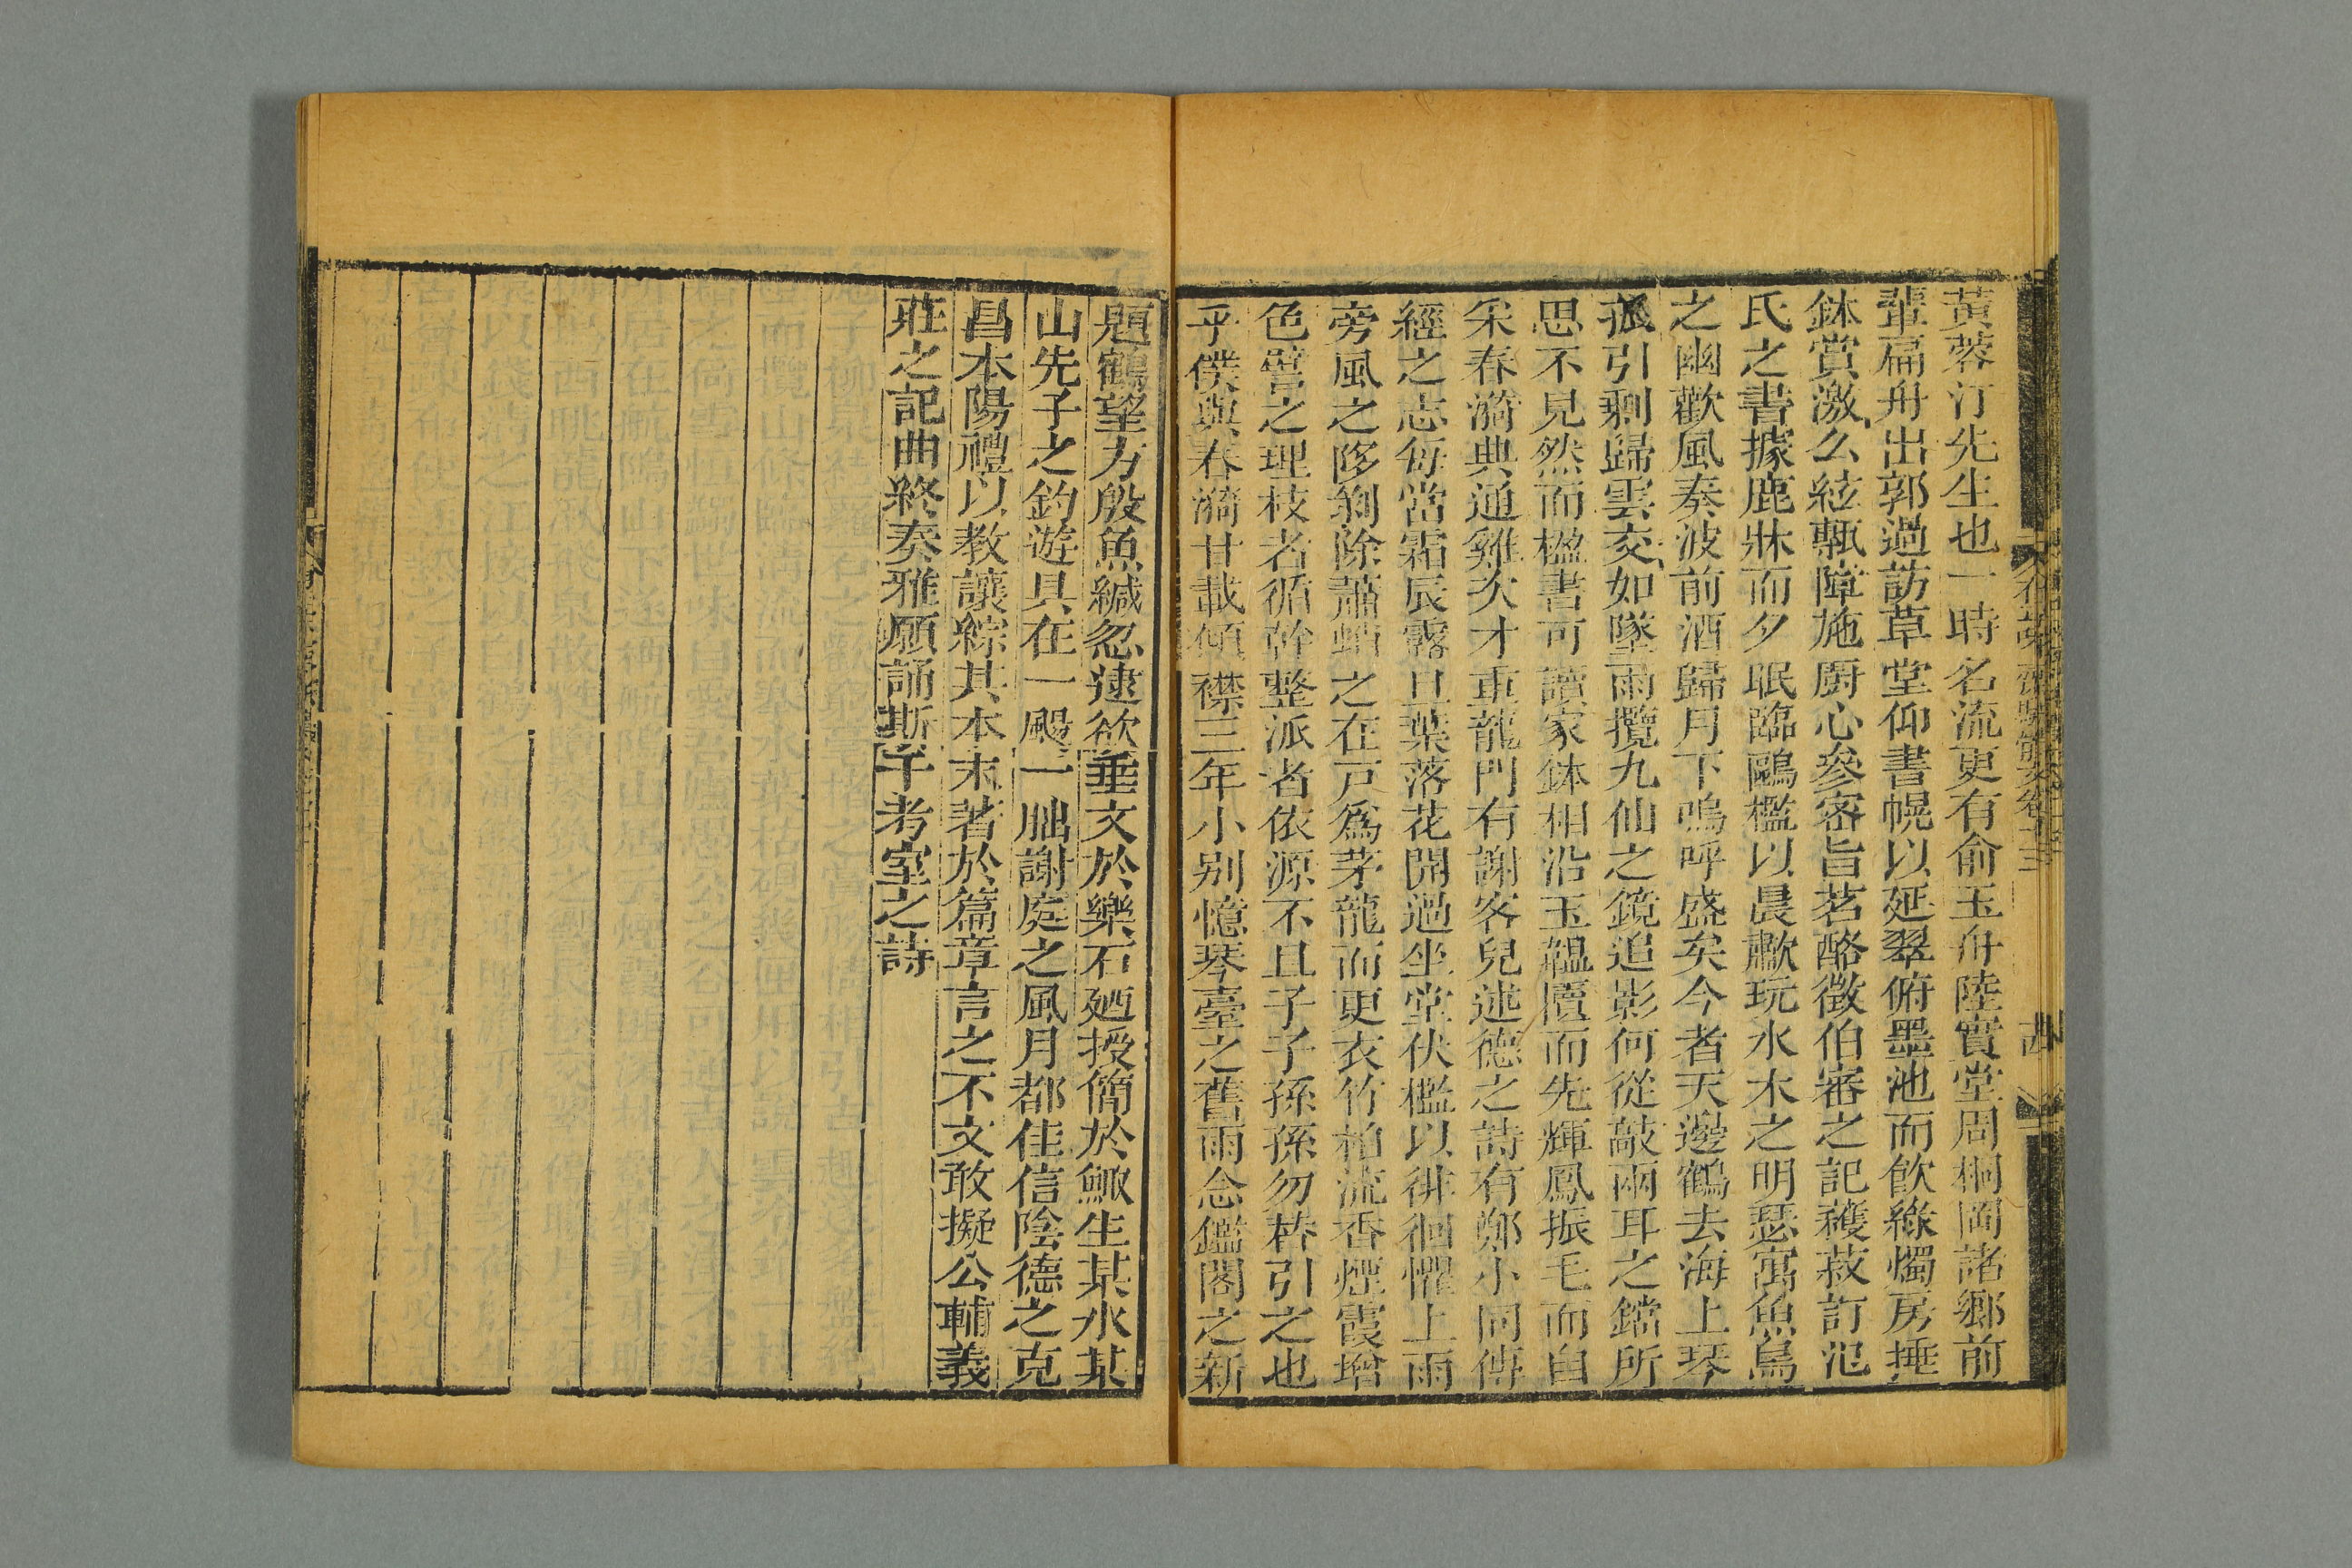 黃蓉汀先生也一時名流更有俞玉舟陸實堂周桐岡諸鄉前
輩扁舟出郭過訪草堂仰書幌以延翠俯墨池而飲綠燭房捶
鉢賞激么絃甎障施廚心參密旨茗酪徵伯審之記䕶菽訂氾
氏之書據鹿牀而夕眠臨鷗檻以晨歗玩水木之明瑟寓魚鳥
之幽歡風奏波前酒歸月下嗚呼盛矣今者天邊鶴去海上琴
孤引剩歸雲交如墜雨攬九仙之鏡追影何從敲兩耳之鐺所
思不見然而楹書可讀家鉢相沿玉韞匵而先輝鳳振毛而自
采春漪典通雞次才重龍門有謝客兒述德之詩有鄭小同傳
經之志每當霜辰露旦葉落花開過坐堂伏檻以徘徊懼上雨
旁風之陊剝除蕭蛸之在戸爲茅龍而更衣竹柏流香煙霞增
色譬之理枝者循幹整派者依源不且子子孫孫勿替引之也
乎僕與春漪廿載傾襟三年小别憶琴臺之舊雨念鑑閣之新
題鶴望方殷魚緘忽逮欲垂文於樂石廼授簡於鯫生某水某
山先子之釣遊具在一觴一詘謝庭之風月都佳信陰德之克
昌本陽禮以教讓綜其本末著於篇章言之不文敢擬公輔義
莊之記曲終奏雅願誦斯干考室之詩